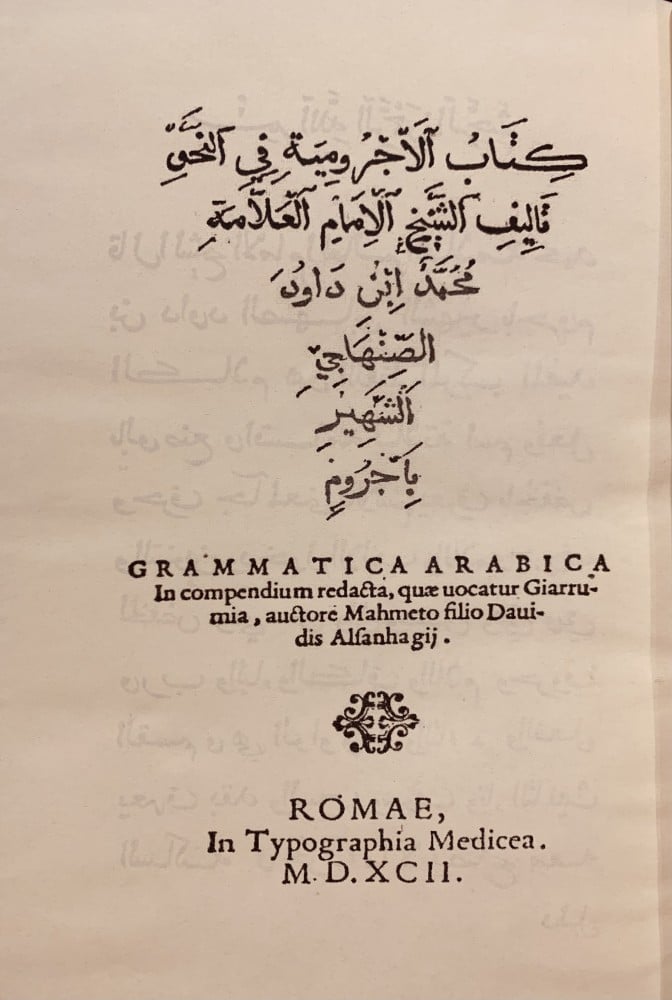 كِتَابُ اَلْآجُرُومِيَةِ فِي اَلنَّحْوِ
تَالِيفِ اَلشَّيْخِ اَلْإِمَامِ اَلْعَلَّامَةِ
مُحَمَّدْ اِبْنِ دَاوُدَ
الصِّنْهَاجِيِّ
اَلشَّهِيرِ
بِآجَرُّومٍ
GRAMMATICA ARABICA
In compendium redacta, quæ uocatur Giarru-
mia, auctore Mahmeto filio Daui-
dis Alsanhagij.
ROMAE,
In Typographia Medicea.
M. D. XCII.